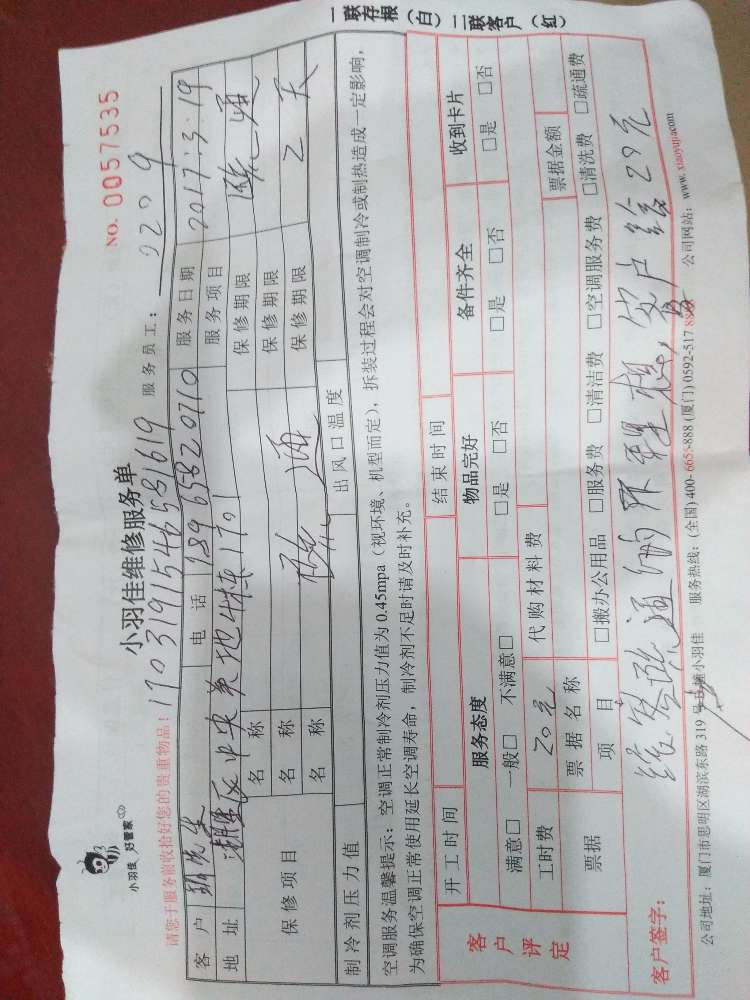 小羽佳 好管家
小羽佳维修服务单
NO. 0057535
请您于服务前收拾好您的贵重物品！ 1703191546581619 服务员工： 9209
客户 电话 18965820710 服务日期 2017:3:19
地址 湖里区中央美地4栋1701 服务项目 疏通
保修项目 名称 保修期限 2天
名称 疏通 保修期限
名称 保修期限
制冷剂压力值 出风口温度
空调服务温馨提示：空调正常制冷剂压力值为 0.45mpa（视环境、机型而定），拆装过程会对空调制冷或制热造成一定影响，
为确保空调正常使用延长空调寿命，制冷剂不足时请及时补充。
开工时间 结束时间
客户评定 服务态度 物品完好 备件齐全 收到卡片
满意□ 一般□ 不满意□ □是 □否 □是 □否 □是 □否
工时费 20元 代购材料费
票据 票据名称 票据金额
项目 □搬办公用品 □服务费 □清洁费 □空调服务费 □清洗费 □疏通费
客户签字： 疏通 不理想，客户给20元
公司地址：厦门市思明区湖滨东路 319 号 小羽佳 服务热线：(全国) 400-6655-888 (厦门) 0592-517 公司网站：www.xiaoyujia.com
一联存根（白） 二联客户（红）